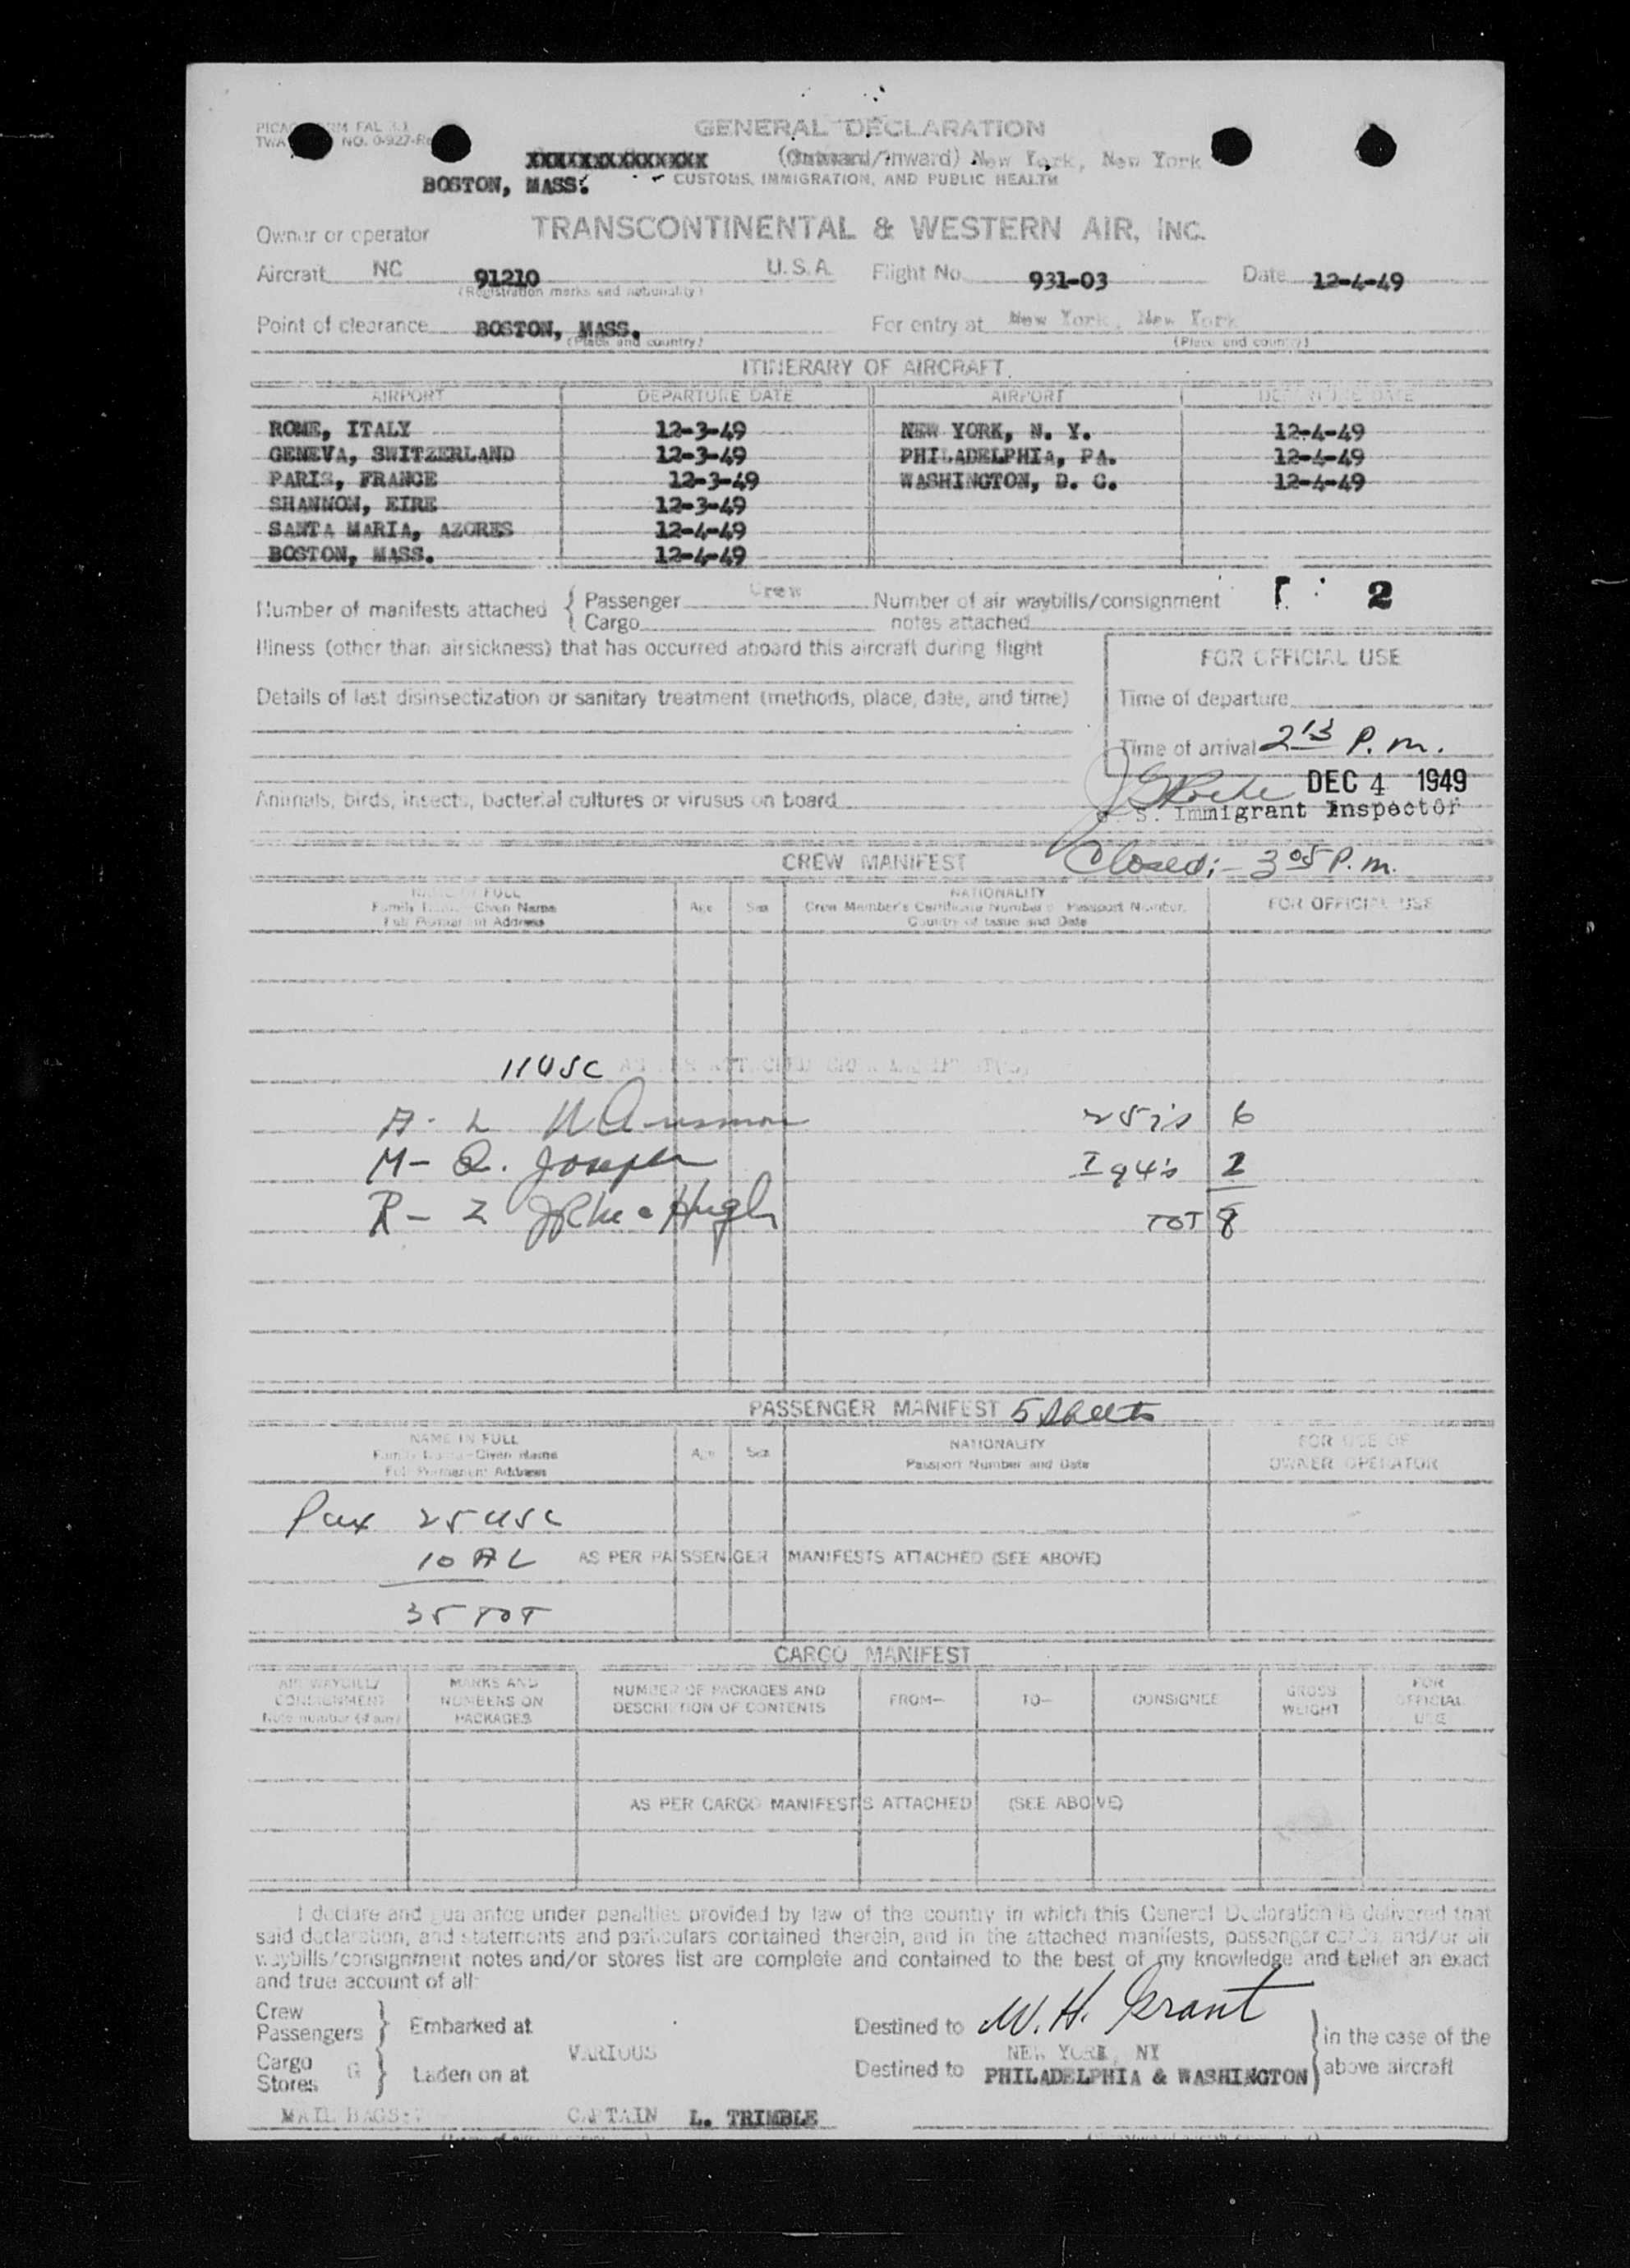 GENERAL DECLARATION
XXXXXXXXXXXXXXX (Outward/Inward) New York, New York
BOSTON, MASS. CUSTOMS, IMMIGRATION, AND PUBLIC HEALTH
Owner or operator TRANSCONTINENTAL & WESTERN AIR, INC.
Aircraft NC 91210 U.S.A. Flight No. 931-03 Date 12-4-49
(Registration marks and nationality)
Point of clearance BOSTON, MASS. For entry at New York, New York
(Place and country) (Place and country)
ITINERARY OF AIRCRAFT
AIRPORT DEPARTURE DATE AIRPORT DEPARTURE DATE
ROME, ITALY 12-3-49 NEW YORK, N. Y. 12-4-49
GENEVA, SWITZERLAND 12-3-49 PHILADELPHIA, PA. 12-4-49
PARIS, FRANCE 12-3-49 WASHINGTON, D. C. 12-4-49
SHANNON, EIRE 12-3-49
SANTA MARIA, AZORES 12-4-49
BOSTON, MASS. 12-4-49
Number of manifests attached { Passenger Crew Number of air waybills/consignment 2
Cargo notes attached
Illness (other than airsickness) that has occurred aboard this aircraft during flight
FOR OFFICIAL USE
Details of last disinsectization or sanitary treatment (methods, place, date, and time)
Time of departure
Time of arrival 2 13 P.m.
DEC 4 1949
Animals, birds, insects, bacterial cultures or viruses on board
S. Immigrant Inspector
CREW MANIFEST Closed:- 3 05 P.m.
NAME IN FULL
Family Name—Given Name
Full Permanent Address
Age Sex
NATIONALITY
Crew Member's Certificate Number Passport Number,
Country of Issue and Date
FOR OFFICIAL USE
11 USC
A - L
25 i's 6
M - Q. Joseph
I 94's 2
R - Z
TOT 8
PASSENGER MANIFEST 5 sheets
NAME IN FULL
Family Name—Given Name
Full Permanent Address
Age Sex
NATIONALITY
Passport Number and Date
FOR USE OF
OWNER OPERATOR
Pax 25 USC
10 AL AS PER PASSENGER MANIFESTS ATTACHED (SEE ABOVE)
35 TOT
CARGO MANIFEST
AIR WAYBILL/
CONSIGNMENT
Note number (if any)
MARKS AND
NUMBERS ON
PACKAGES
NUMBER OF PACKAGES AND
DESCRIPTION OF CONTENTS
FROM—
TO—
CONSIGNEE
GROSS
WEIGHT
FOR
OFFICIAL
USE
AS PER CARGO MANIFESTS ATTACHED (SEE ABOVE)
I declare and guarantee under penalties provided by law of the country in which this General Declaration is delivered that
said declaration, and statements and particulars contained therein, and in the attached manifests, passenger cards, and/or air
waybills/consignment notes and/or stores list are complete and contained to the best of my knowledge and belief an exact
and true account of all:
Crew
Passengers } Embarked at Destined to W. H. Grant
in the case of the
VARIOUS NEW YORK, NY
Cargo
Stores } Laden on at Destined to PHILADELPHIA & WASHINGTON above aircraft
MAIL BAGS: CAPTAIN L. TRIMBLE